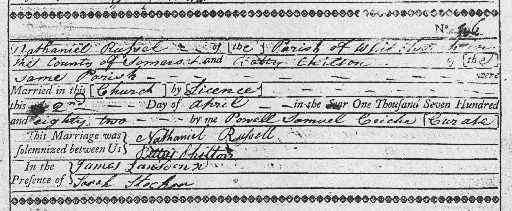 No.
Nathaniel Russel of [the] Parish of in
the County of Somerset and Betty Chilton of [the]
same Parish were
Married in this [Church] by Licence
this 2nd Day of April in the Year One Thousand Seven Hundred
and eighty two by me Powell Samuel [Curate]
This Marriage was solemnized between Us { Nathaniel Russell
Chilton
In the Presence of { James
Sarah